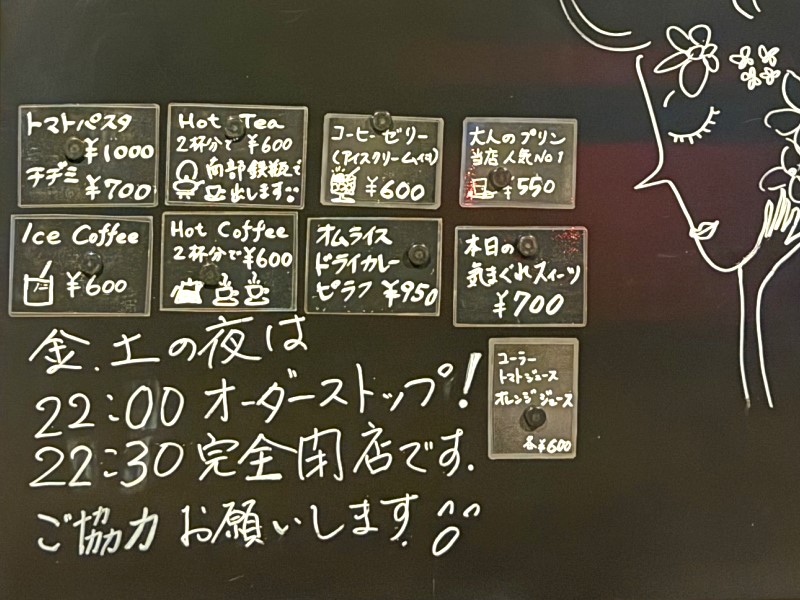 トマトパスタ
¥1000
チヂミ
¥700
Hot Tea
2杯分で ¥600
南部鉄瓶で
出します
コーヒーゼリー
(アイスクリーム付)
¥600
大人のプリン
当店人気No1
¥550
Ice Coffee
¥600
Hot Coffee
2杯分で¥600
オムライス
ドライカレー
ピラフ ¥950
本日の
気まぐれスイーツ
¥700
コーラー
トマトジュース
オレンジジュース
各¥600
金.土の夜は
22:00 オーダーストップ!
22:30 完全閉店です.
ご協力お願いします.